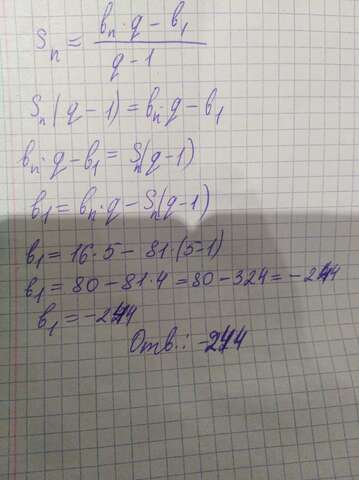 Sₙ = (bₙ·q − b₁)/(q − 1)
Sₙ(q − 1) = bₙ·q − b₁
bₙ·q − b₁ = Sₙ(q − 1)
b₁ = bₙ·q − Sₙ(q − 1)
b₁ = 16·5 − 81·(5 − 1)
b₁ = 80 − 81·4 = 80 − 324 = −244
b₁ = −244
Отв.: −244